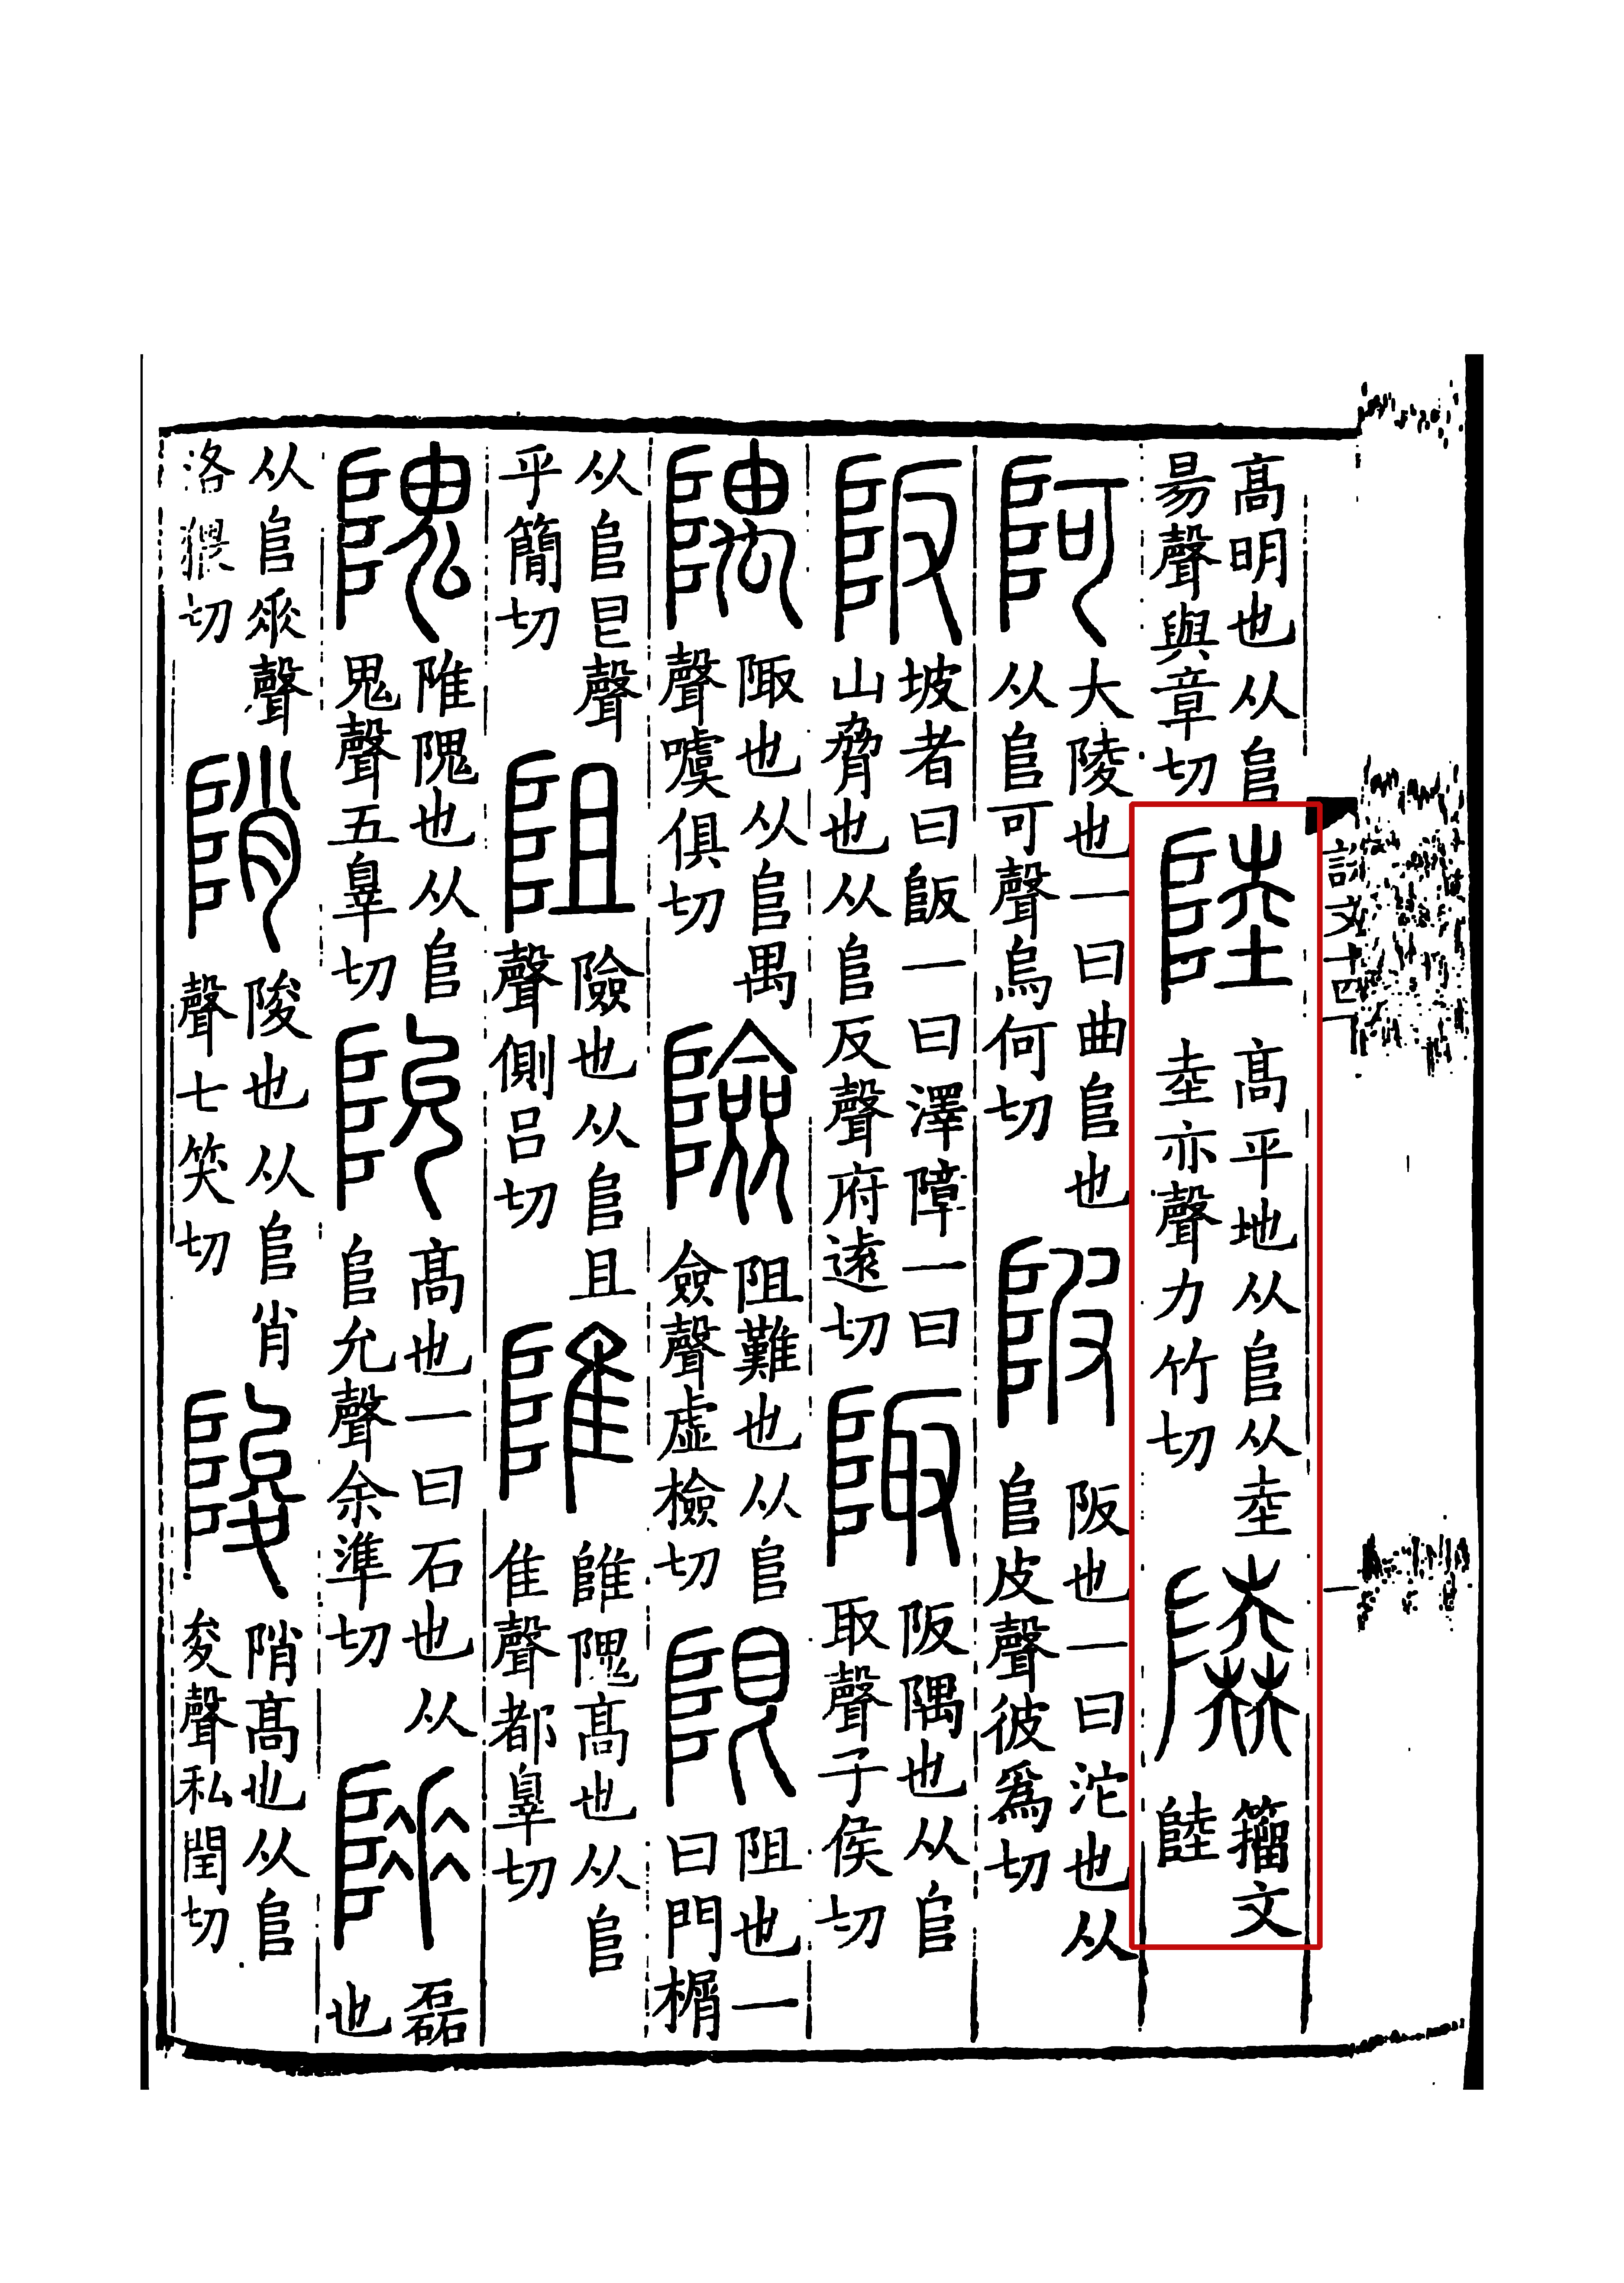 高明也从𨸏
昜聲與章切
陸
高平地从𨸏从坴
坴亦聲力竹切
籒文
陸
阿
大陵也一曰曲𨸏也
从𨸏可聲烏何切
陂
阪也一曰沱也从
𨸏皮聲彼爲切
阪
坡者曰阪一曰澤障一曰
山脅也从𨸏反聲府遠切
陬
阪隅也从𨸏
取聲子侯切
隅
陬也从𨸏禺
聲噳俱切
險
阻難也从𨸏
僉聲虛檢切
限
阻也一
曰門榍
从𨸏㫐聲
乎簡切
阻
險也从𨸏且
聲側呂切
陮
陮隗高也从𨸏
隹聲都辠切
隗
陮隗也从𨸏
鬼聲五辠切
阭
高也一曰石也从
𨸏允聲余準切
磊
也
从𨸏𠂢聲
洛猥切
陗
陵也从𨸏肖
聲七笑切
陵
陗高也从𨸏
夋聲私閏切
說文十四下